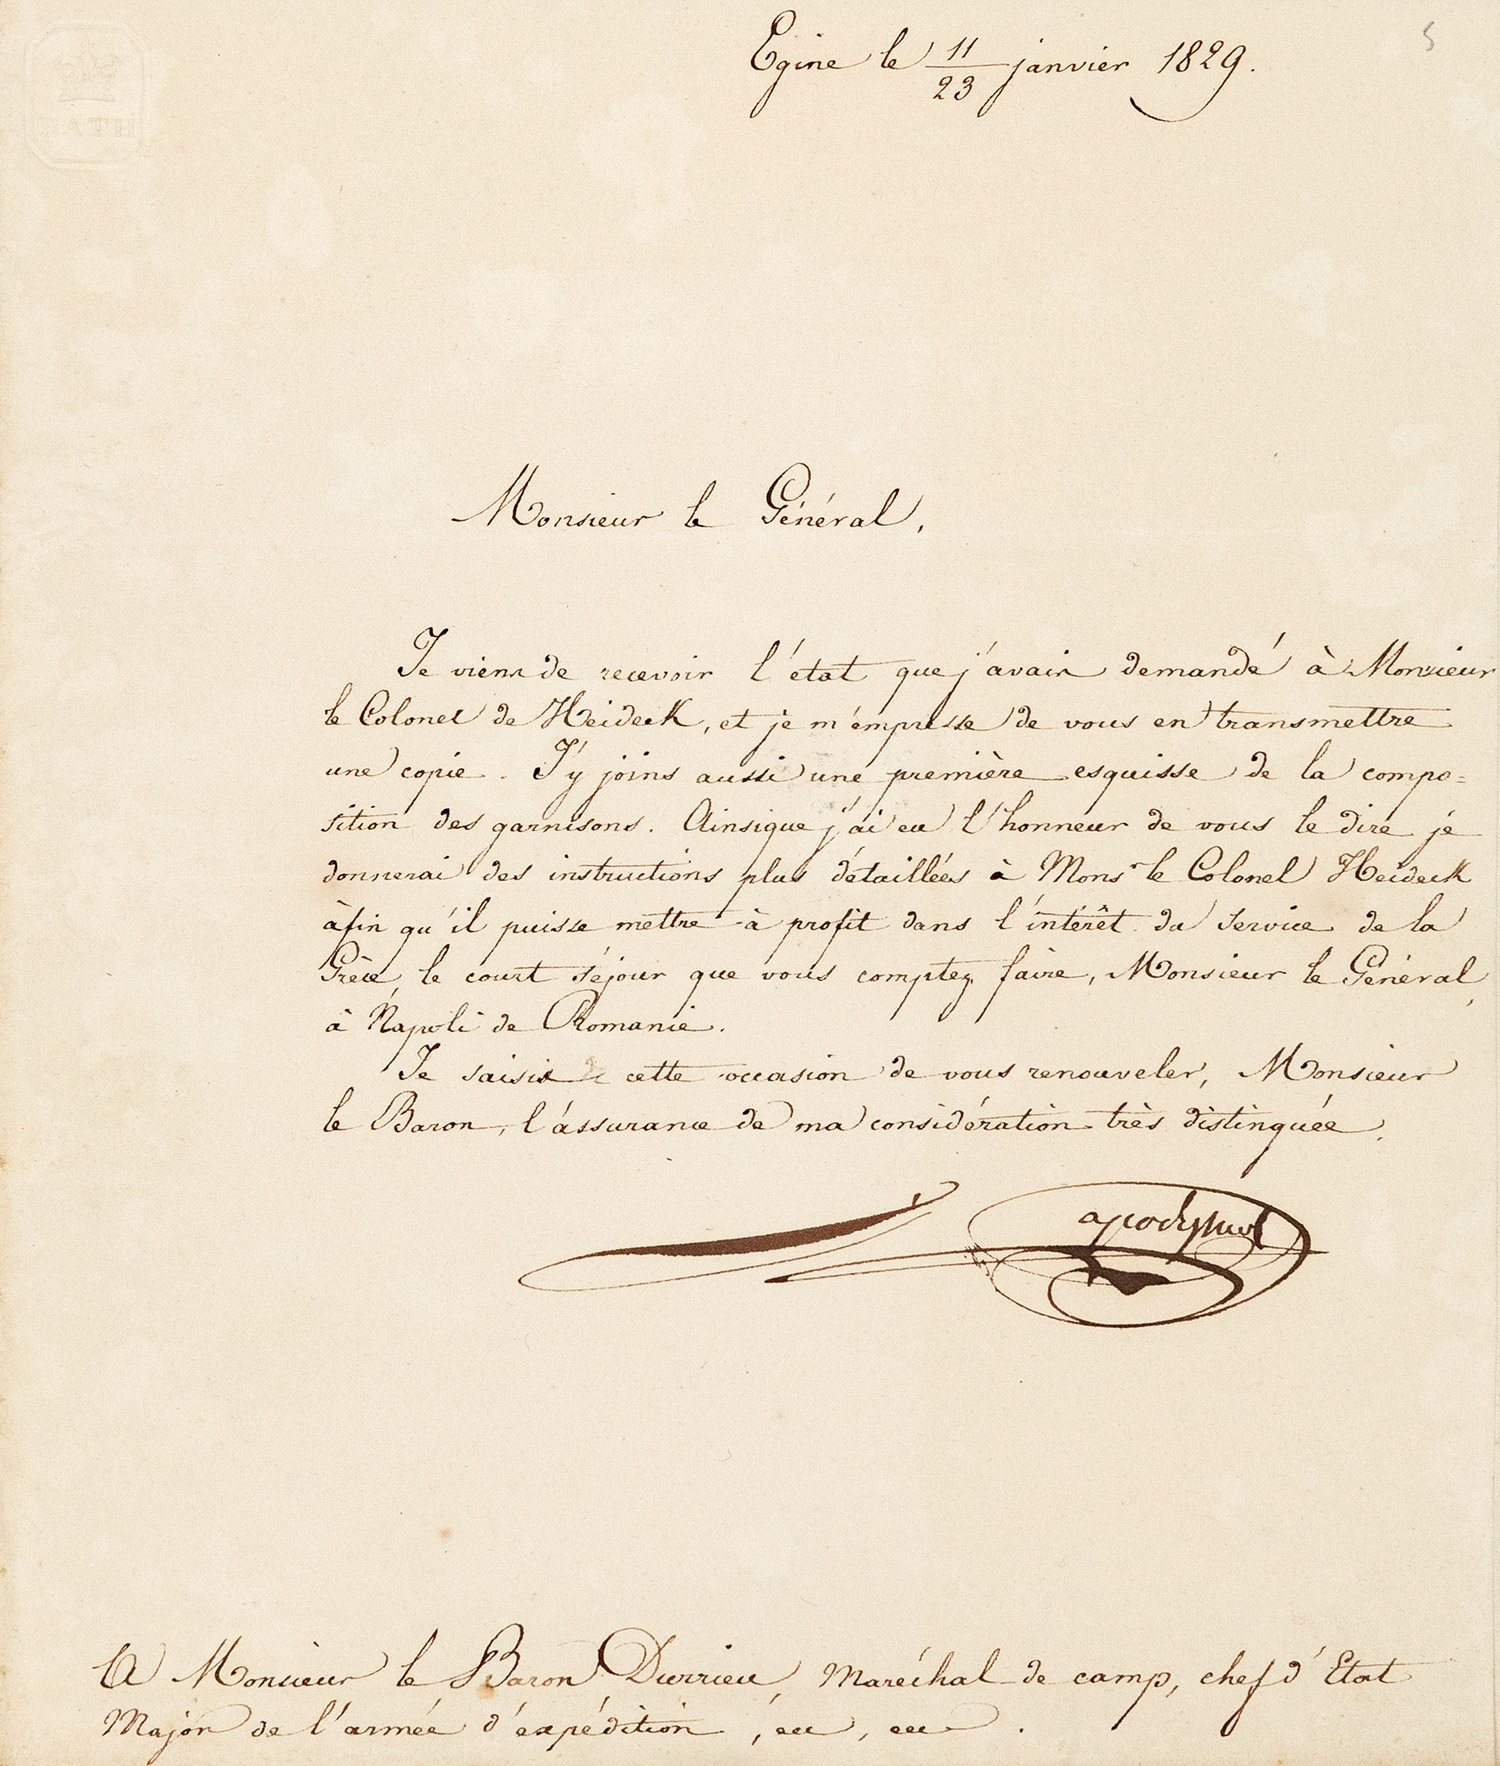 5
Egine le 11/23 janvier 1829.
Monsieur le Général,
Je viens de recevoir l'état que j'avais demandé à Monsieur
le Colonel de Heideck, et je m'empresse de vous en transmettre
une copie. J'y joins aussi une première esquisse de la compo=
sition des garnisons. Ainsique j'ai eu l'honneur de vous le dire je
donnerai des instructions plus détaillées à Monsr le Colonel Heideck
àfin qu'il puisse mettre à profit dans l'intérêt du service de la
Grèce, le court séjour que vous comptez faire, Monsieur le Général,
à Napoli de Romanie.
Je saisis cette occasion de vous renouveler, Monsieur
le Baron, l'assurance de ma considération très distinguée.
A Monsieur le Baron Durrieu, Maréchal de camp, chef d'Etat
Major de l'armée d'expédition, &c, &c.